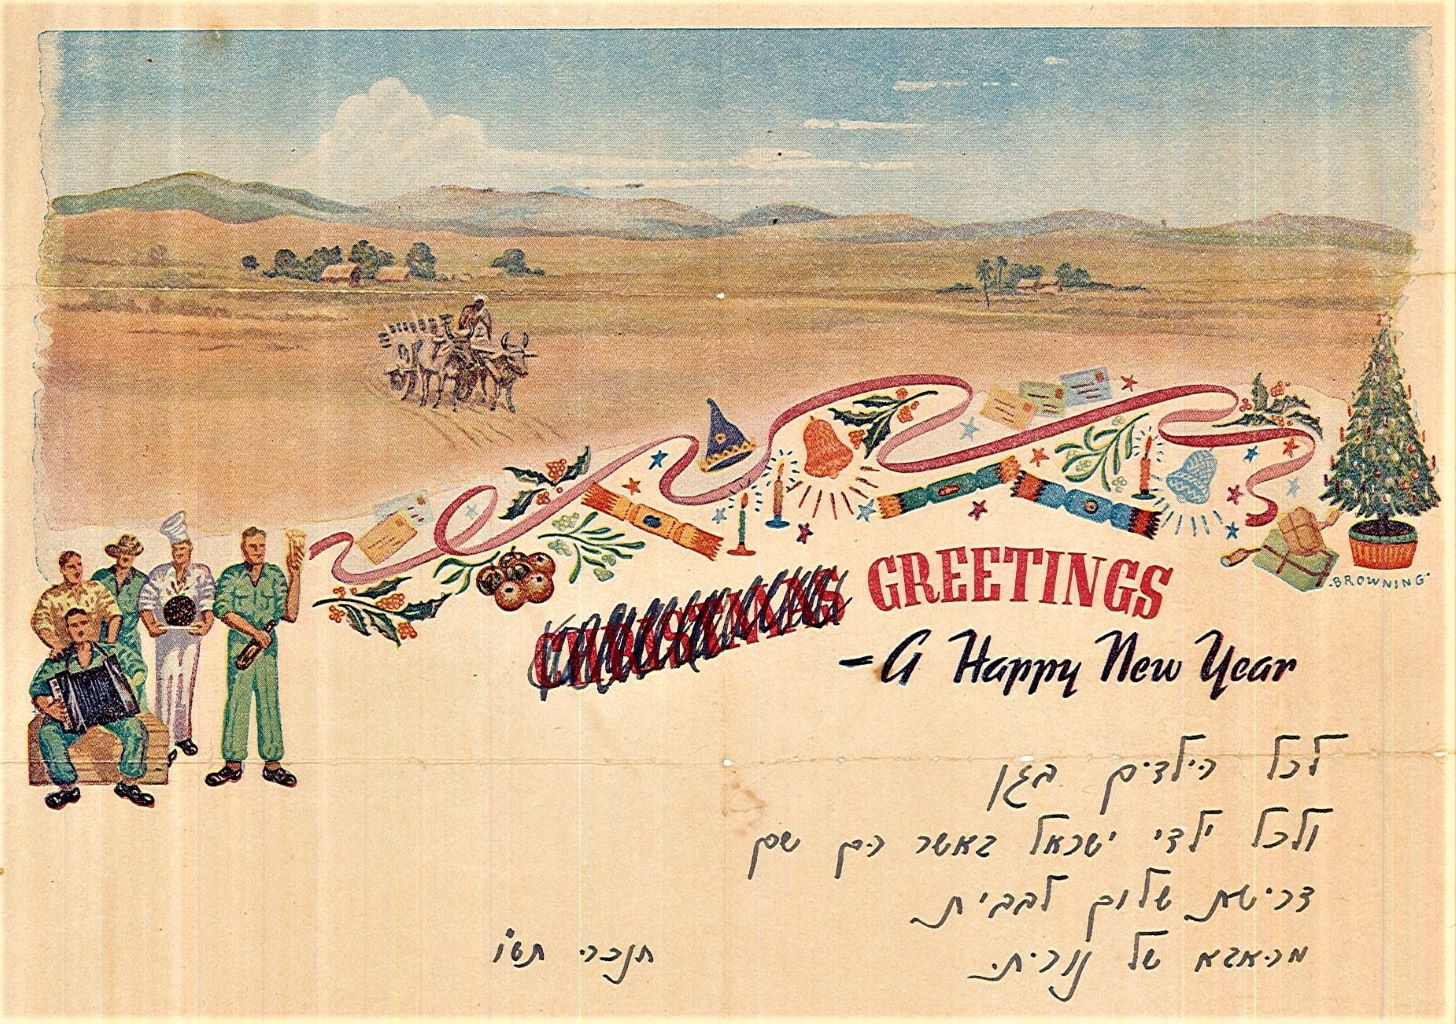 CHRISTMAS GREETINGS
- A Happy New Year
BROWNING
לכל הילדים בגן
ולכל ילדי ישראל באשר הם שם
דרישת שלום לבבית
מהאבא של נורית.
חנכה תש"ו